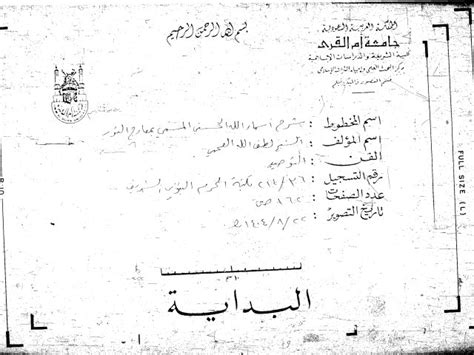 بسم الله الرحمن الرحيم
المملكة العربية السعودية
جامعة أم القرى
كلية الشريعة والدراسات الإسلامية
مركز البحث العلمي وإحياء التراث الإسلامي
اسم المخطوط : شرح أسماء الله الحسنى المسمى بمعارج النور
اسم المؤلف : الشيخ لطف الله
الفن : التوحيد
رقم التسجيل : ٢١٤/٣٦ مكتبة الحرم النبوي الشريف
عدد الصفحات : ٨٦٢ ص
تاريخ التصوير : ١٤٠٤/٨/٢٢ هـ
البداية
FULL SIZE (L)